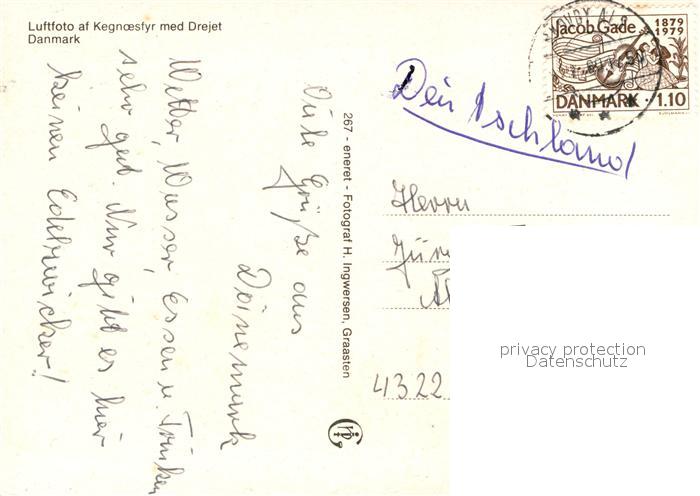 Luftfoto af Kegnœsfyr med Drejet
Danmark
Jacob Gade 1879
1979
DANMARK 1.10
Deutschland
Viele Grüße aus
Dänemark
Wetter, Wasser, Essen u. Trinken
sehr gut. Nur gibt es hier
keinen Edelzwicker!
267 - eneret - Fotograf H. Ingwersen, Graasten
Herrn
4322
privacy protection
Datenschutz